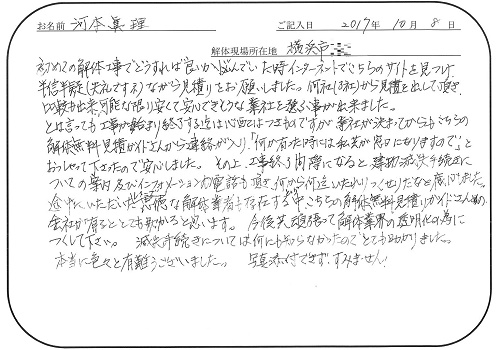 お名前 河本眞理 ご記入日 2017年10月8日
解体現場所在地 横浜市
初めての解体工事でどうすれば良いか悩んでいた時インターネットでこちらのサイトを見つけ
半信半疑(失礼ですネ)ながら見積りをお願いしました。何社(3社)から見積を出して頂き
比較も出来、可能な限り安くて安心できそうな業社を選ぶ事が出来ました。
とは言っても工事が始まり終了する迄は心配はつきものですが業社が決まってからもこちらの
解体無料見積ガイドさんから連絡が入り「何か有った時には私共が窓口になりますので」と
おっしゃって下さったので安心しました。その上、工事終了間際になると建物滅失手続きに
ついての案内及びインフォメーションの電話も頂き、何から何迄いたれりつくせりだなと感じました。
途中にいただいた 悪徳な解体業者も存在する中、こちらの解体無料見積りガイドさんの様な
会社が有るととても助かると思います。今後共頑張って解体業界の透明化の為に
つくして下さい。滅失手続きについては何にも知らなかったのでとても助かりました。
本当に色々と有難うございました。 写真添付できず、すみません!